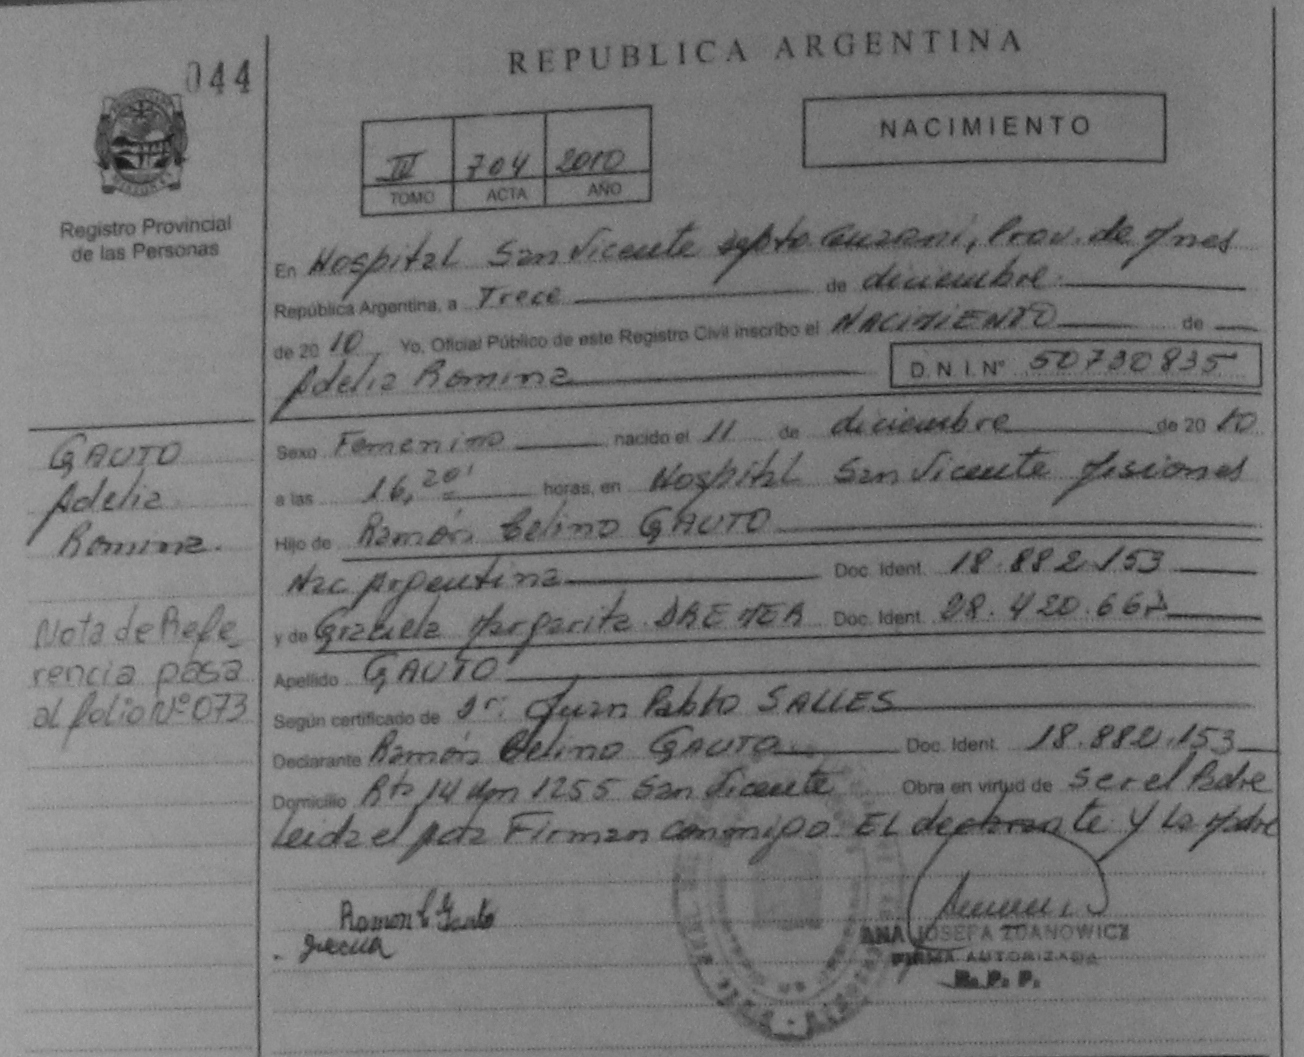 044
REPUBLICA ARGENTINA
NACIMIENTO
III 704 2010
TOMO ACTA AÑO
Registro Provincial
de las Personas
En Hospital San Vicente Dpto Guaraní, Prov. de Mnes
República Argentina, a Trece de diciembre
de 2010, Yo, Oficial Público de este Registro Civil inscribo el NACIMIENTO de
Adelia Romina D. N. I. Nº 50730835
Sexo Femenino nacido el 11 de diciembre de 2010
a las 16,20' horas, en Hospital San Vicente Misiones
Hijo de Ramón Celino GAUTO
Nac Argentina Doc. Ident. 18.882.153
y de Graciela Margarita Doc. Ident. 28.420.662
Apellido GAUTO
Según certificado de Dr. Juan Pablo SALLES
Declarante Ramón Celino GAUTO Doc. Ident. 18.882.153
Domicilio Rta 14 Km 1255 San Vicente Obra en virtud de Ser el Padre
Leida el Acta Firman conmigo El declarante Y La Madre
GAUTO
Adelia
Romina.
Nota de Refe
rencia pasa
al folio Nº 073
Ramon C Gauto
ANA JOSEFA ZDANOWICZ
FIRMA AUTORIZADA
R. P. P.